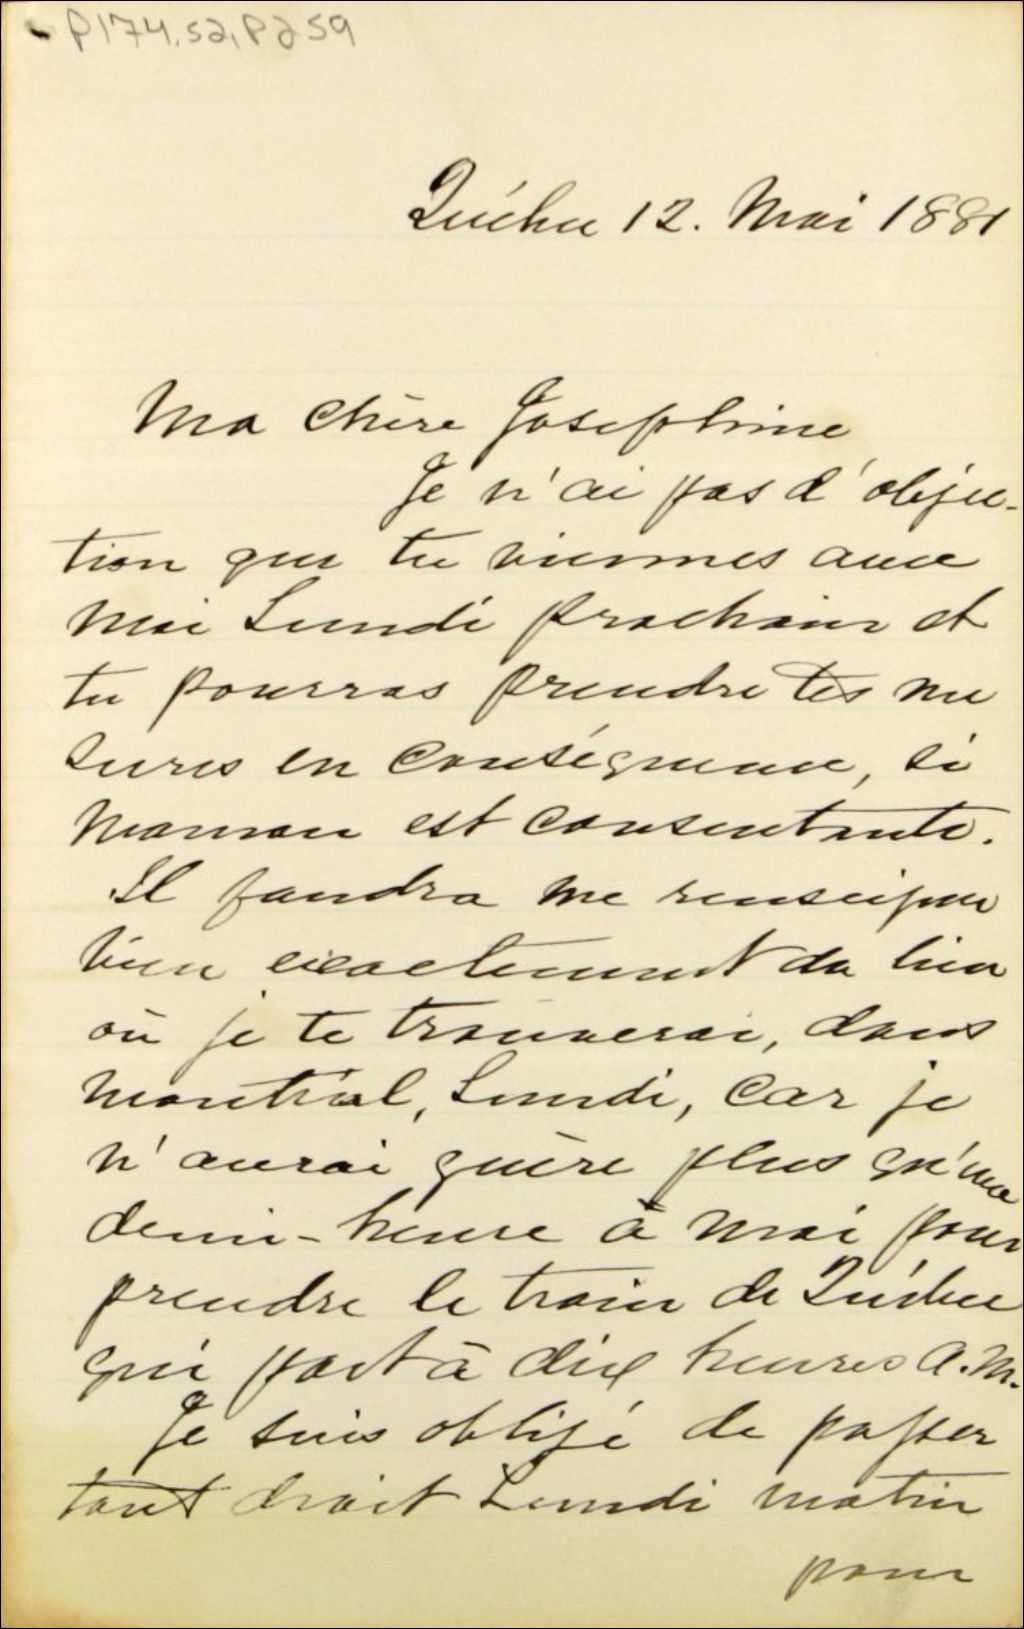 P174,S2,P259
Québec 12. Mai 1881
Ma chère Josephine
Je n'ai pas d'objec-
tion que tu viennes avec
moi Lundi prochain et
tu pourras prendre tes me
sures en conséquence, si
maman est consentante.
Il faudra me renseigner
bien exactement du lieu
où je te trouverai, dans
Montréal, Lundi, car je
n'aurai guère plus qu'une
demi-heure à moi pour
prendre le train de Québec
qui part à dix heures A.M.
Je suis obligé de passer
tout droit Lundi matin
pour